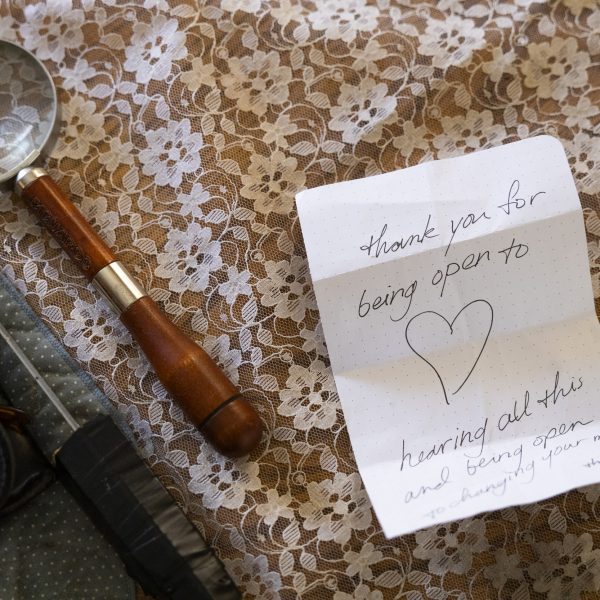 thank you for
being open to
hearing all this
and being open
to changing your